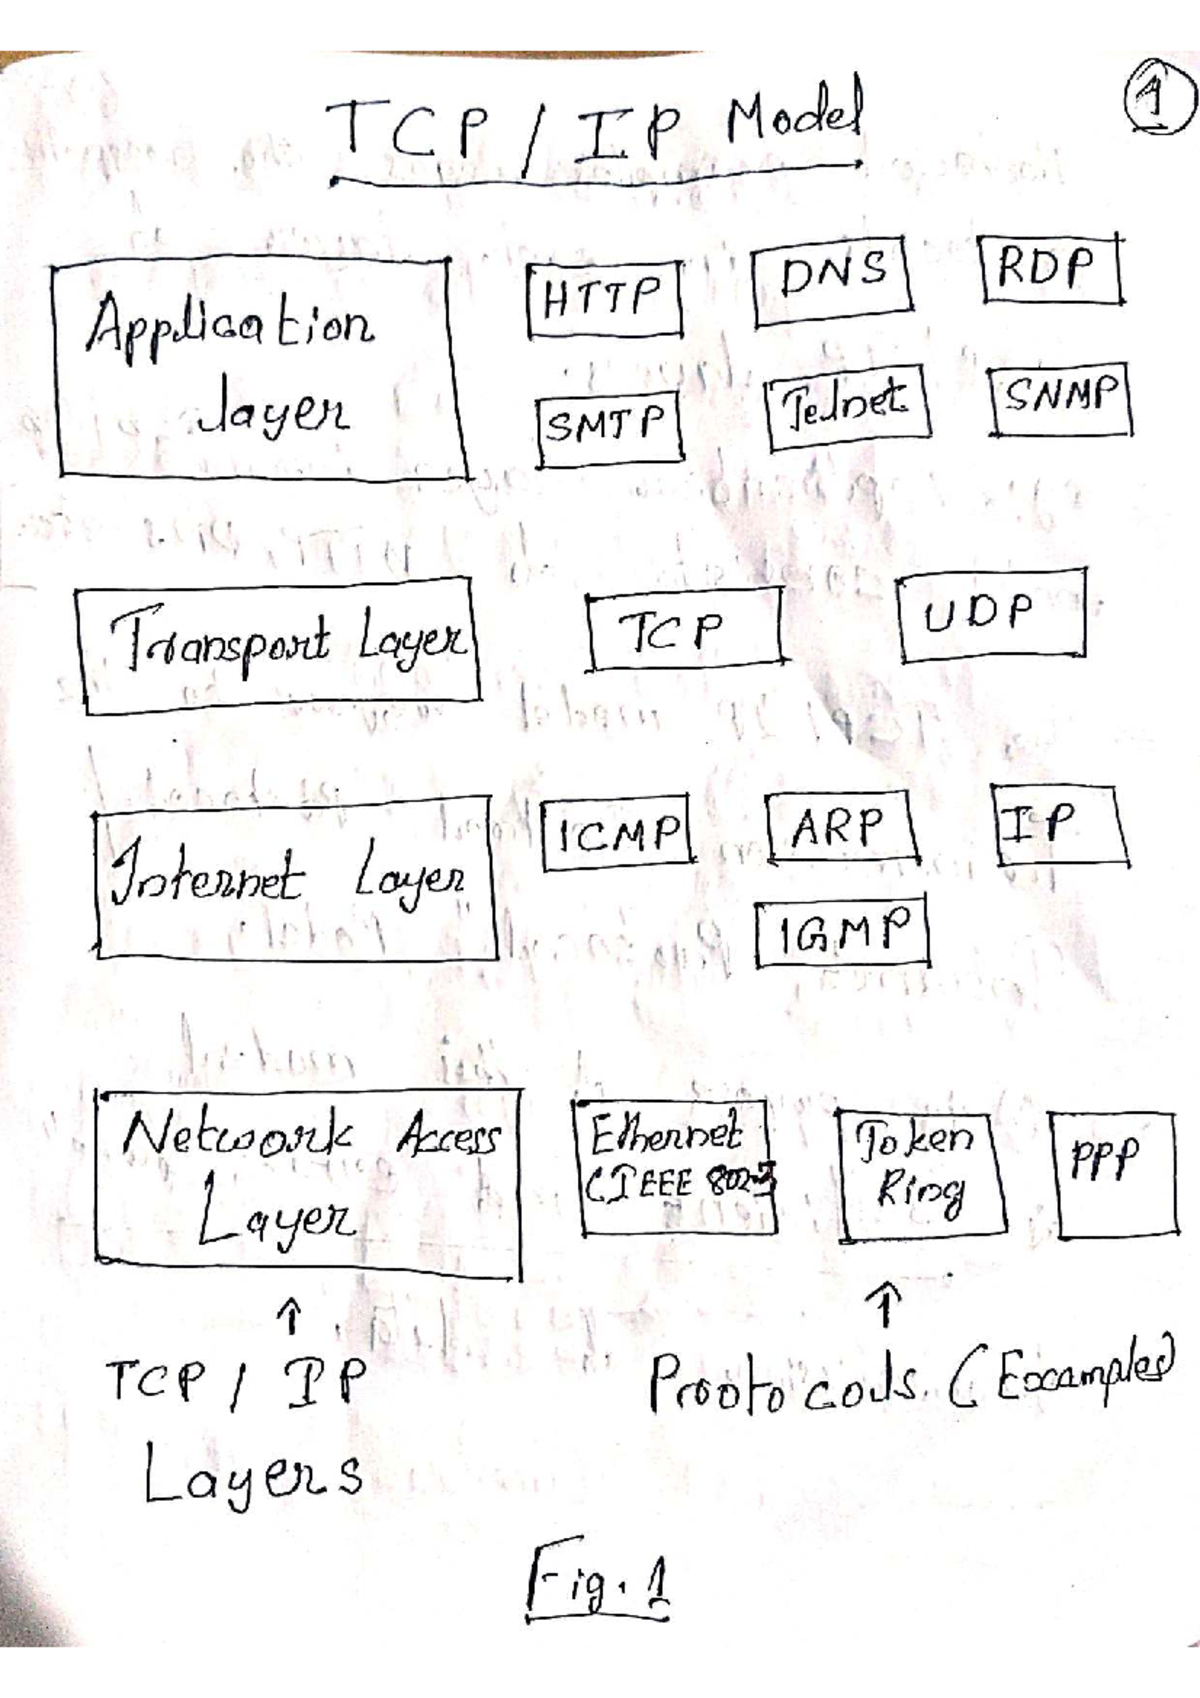 1
TCP / IP Model
Application
layer
HTTP
DNS
RDP
SMTP
Telnet
SNMP
Transport Layer
TCP
UDP
Internet Layer
ICMP
ARP
IP
IGMP
Network Access
Layer
Ethernet
(IEEE 802.3
Token
Ring
PPP
↑
↑
TCP / IP
Layers
Protocols. (Examples)
Fig. 1